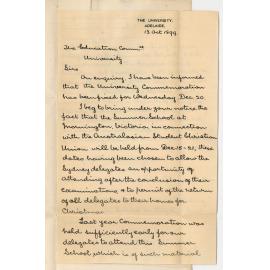 THE UNIVERSITY,
ADELAIDE.
13 Oct 1899
The Education Comm.ee
University
Sirs
On enquiry I have been informed
that the University Commemoration
has been fixed for Wednesday Dec. 20.
I beg to bring under your notice the
fact that the Summer School at
Mornington, Victoria in connection
with the Australasian Student Christian
Union will be held from Dec 15 - 21, these
dates having been chosen to allow the
Sydney delegates an opportunity of
attending after the conclusion of their
examinations & to permit of the return
of all delegates to their homes for
Christmas.
Last year Commemoration was
held sufficiently early for our
delegates to attend this Summer
School which is of such material